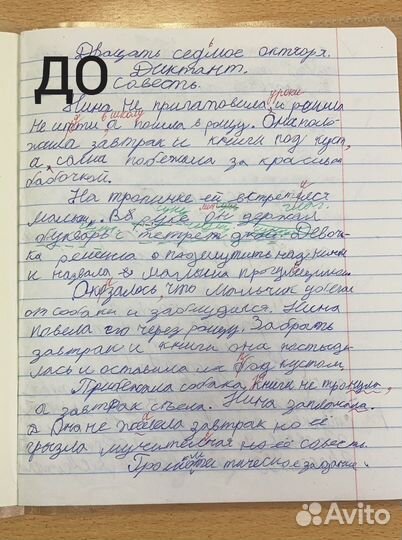 Двацать седьмое октября.
ДО
Диктант.
Совесть.
уроки
Нина не приготовила и решила
в школу
не идти, а пошла в рощу. Она поло-
жила завтрак и книги под куст,
а сама побежала за красивой
бабочкой.
На тропинке ей встретился
малыш. В руке он держал
букварь с тетрет
Девоч-
ка решила подшутить над ним
и назвала малыша прогульщиком.
Оказалось, что мальчик убегал
от собаки и заблудился. Нина
повела его через рощу. Забрать
завтрак и книги она постыди-
лась и оставила их под кустом.
Прибежала собака книги не тронула,
а завтрак съела. Нина заплакала.
Она не жалела завтрак но её
грызла мучительная но её совесть.
Граматическое задание.
Avito